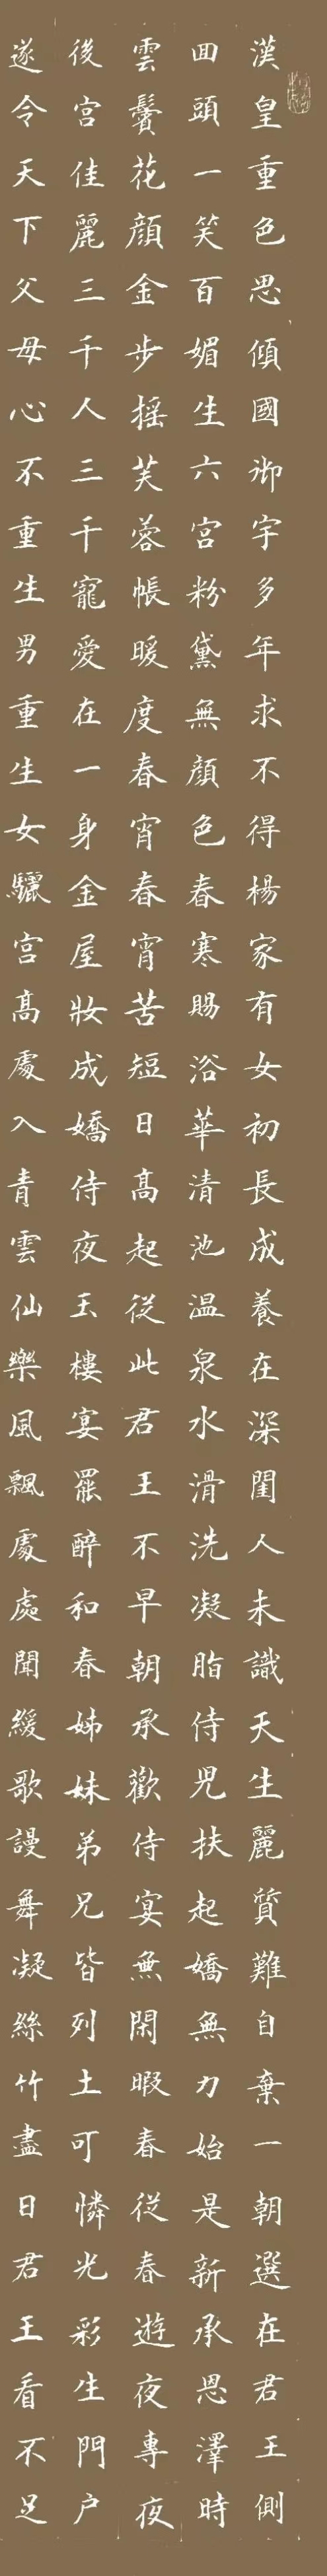 漢皇重色思傾國御宇多年求不得楊家有女初長成養在深閨人未識天生麗質難自棄一朝選在君王側
囬頭一笑百媚生六宮粉黛無顔色春寒賜浴華清池温泉水滑洗凝脂侍兒扶起嬌無力始是新承恩澤時
雲鬢花顔金步搖芙蓉帳暖度春宵春宵苦短日髙起從此君王不早朝承歡侍宴無閑暇春從春遊夜專夜
後宮佳麗三千人三千寵愛在一身金屋妝成嬌侍夜玉樓宴罷醉和春姊妹弟兄皆列土可憐光彩生門户
遂令天下父母心不重生男重生女驪宮髙處入青雲仙樂風飄處處聞緩歌謾舞凝絲竹盡日君王看不足